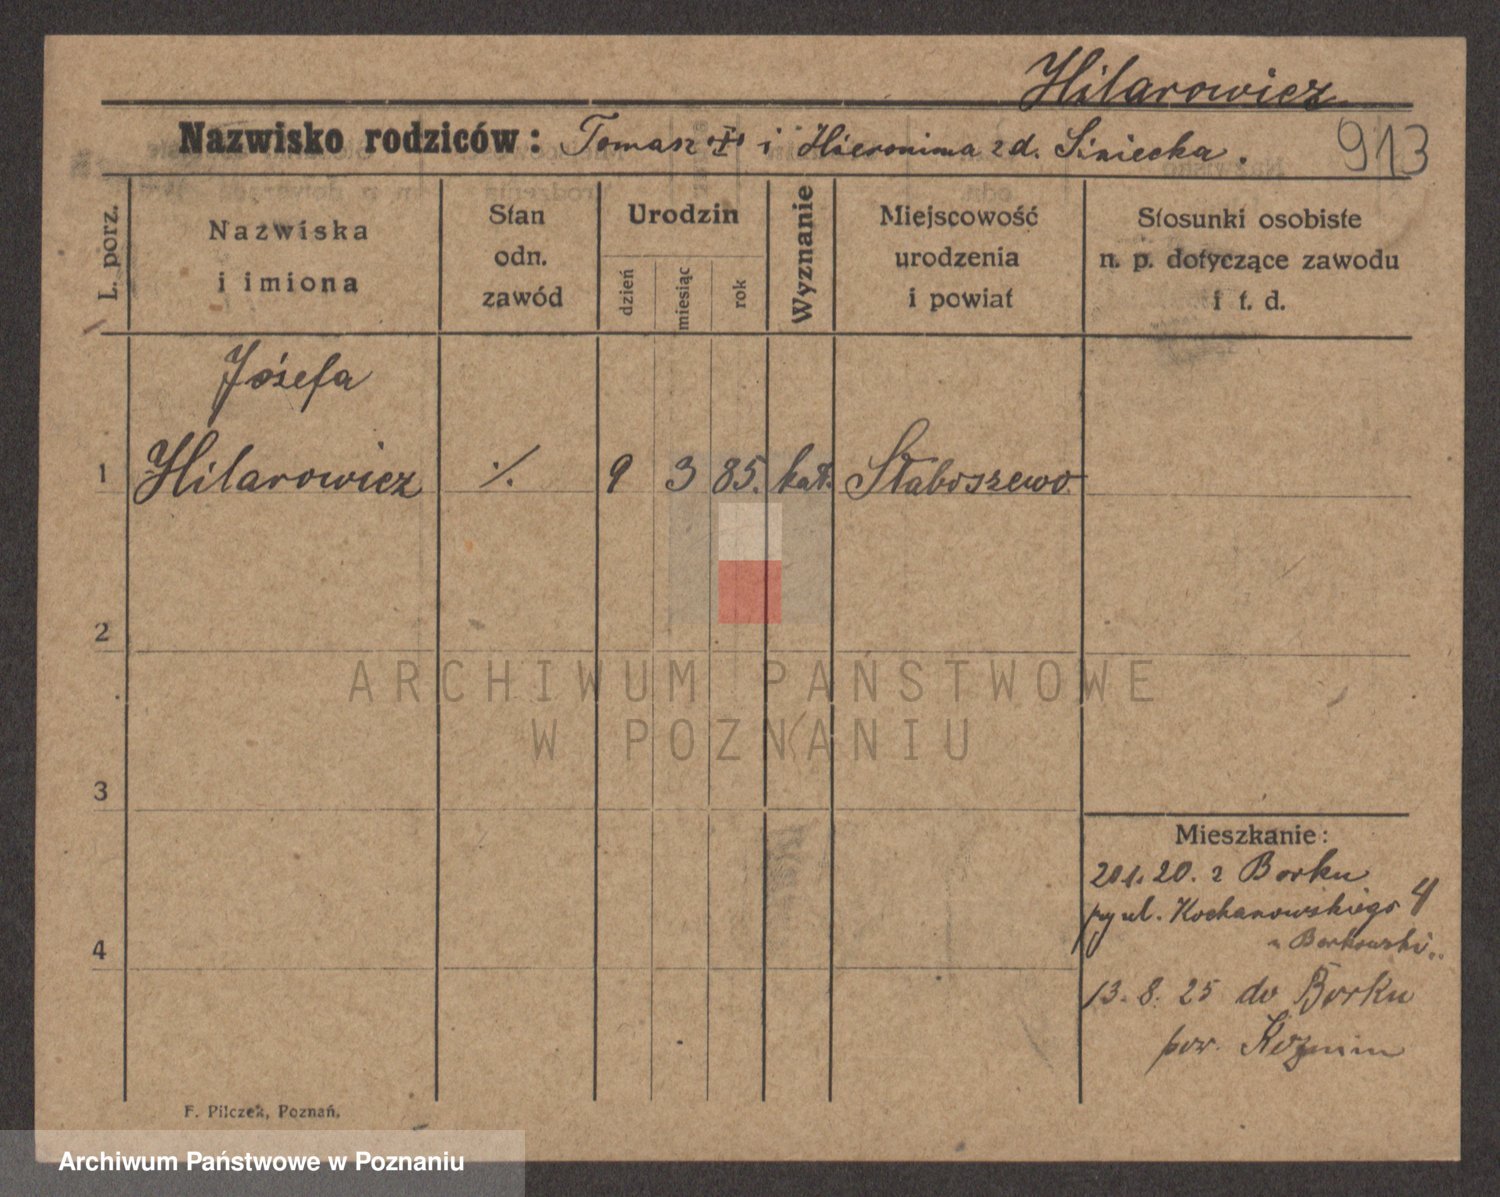 Hilarowicz
Nazwisko rodziców: Tomasz i Hieronima zd. Siniecka.
913
L. porz.
Nazwiska
i imiona
Stan
odn.
zawód
Urodzin
dzień
miesiąc
rok
Wyznanie
Miejscowość
urodzenia
i powiat
Stosunki osobiste
n. p. dotyczące zawodu
i t. d.
Józefa
1 Hilarowicz ./. 9 3 85. kat. Staboszewo
2
ARCHIWUM PAŃSTWOWE
W POZNANIU
3
Mieszkanie:
20. z Borku
ul. Kochanowskiego 4
Borkowski
4
13. 8. 25 do Borku
pow. Koźmin
F. Pilczek, Poznań.
Archiwum Państwowe w Poznaniu